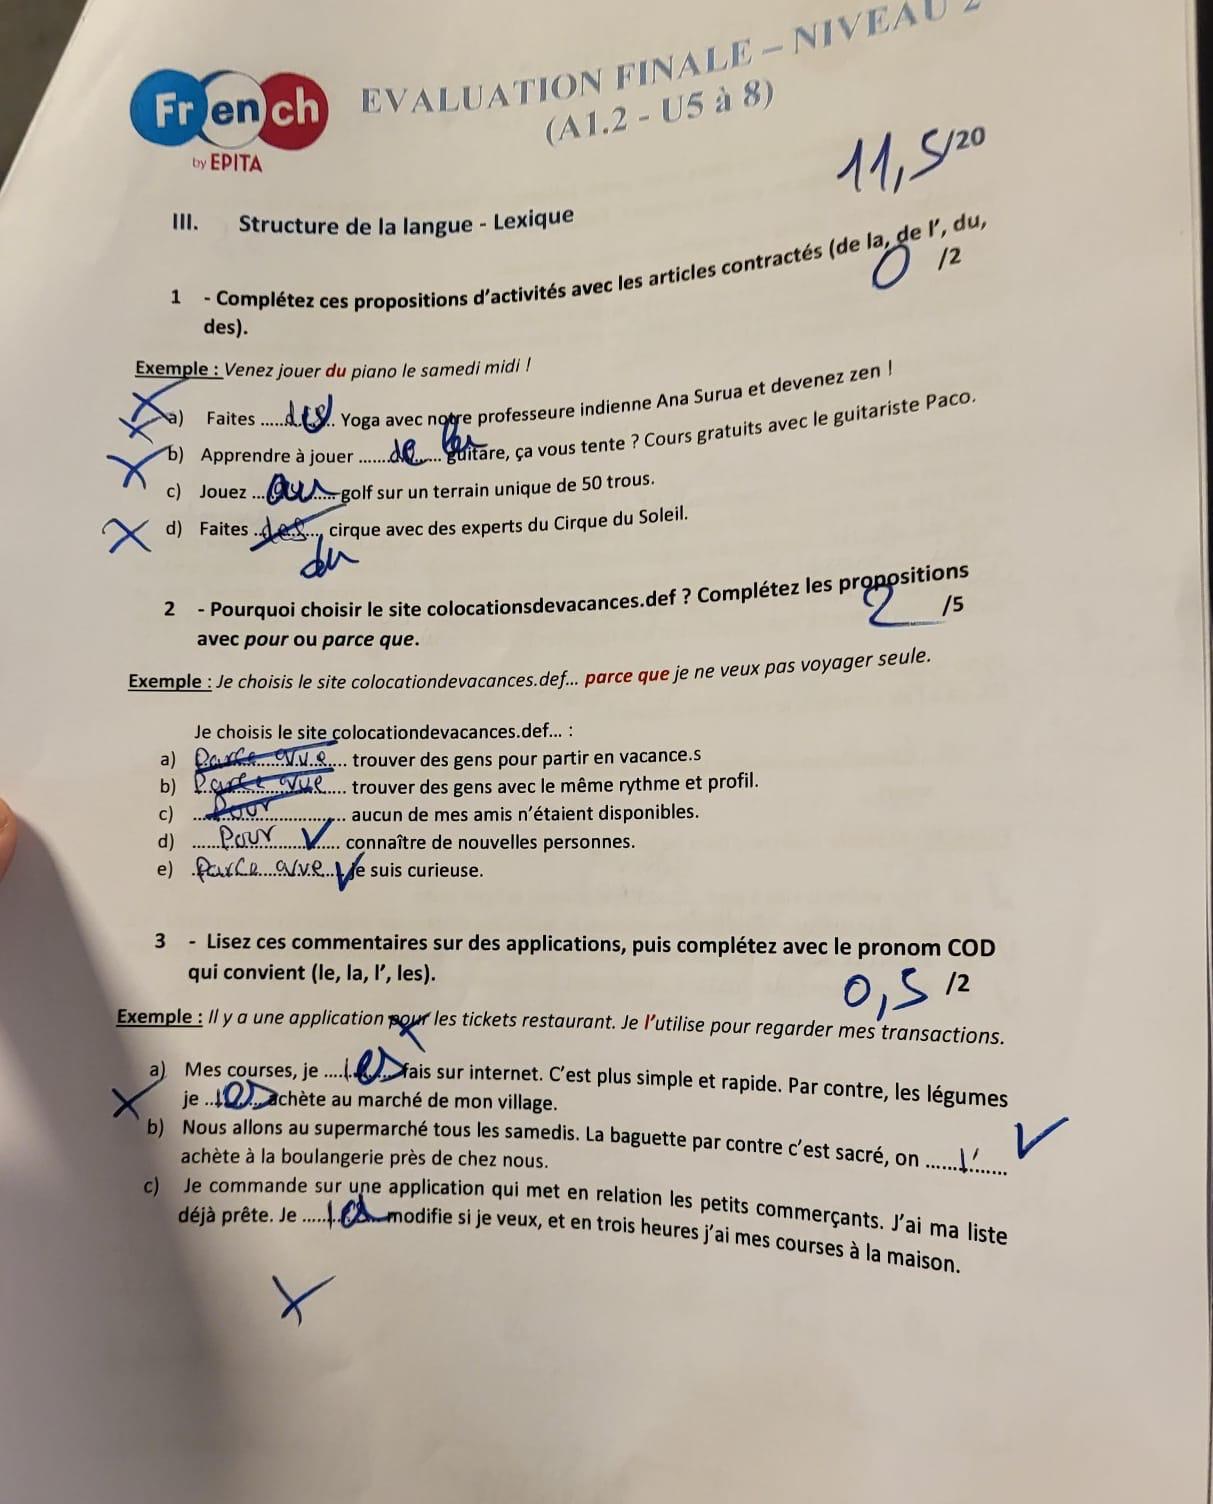 French
by EPITA
EVALUATION FINALE – NIVEAU 2
(A1.2 - U5 à 8)
11,5/20
III. Structure de la langue - Lexique
1 - Complétez ces propositions d'activités avec les articles contractés (de la, de l', du,
des).
0 /2
Exemple : Venez jouer du piano le samedi midi !
a) Faites ......des... Yoga avec notre professeure indienne Ana Surua et devenez zen !
b) Apprendre à jouer .......de la.... guitare, ça vous tente ? Cours gratuits avec le guitariste Paco.
c) Jouez ...au......golf sur un terrain unique de 50 trous.
d) Faites ..des..., cirque avec des experts du Cirque du Soleil.
du
2 - Pourquoi choisir le site colocationsdevacances.def ? Complétez les propositions
avec pour ou parce que.
2 /5
Exemple : Je choisis le site colocationdevacances.def... parce que je ne veux pas voyager seule.
Je choisis le site colocationdevacances.def... :
a) Parce que.... trouver des gens pour partir en vacance.s
b) Parce que.... trouver des gens avec le même rythme et profil.
c) ....Pour.............. aucun de mes amis n'étaient disponibles.
d) ......Pour........ connaître de nouvelles personnes.
e) .Parce que...je suis curieuse.
3 - Lisez ces commentaires sur des applications, puis complétez avec le pronom COD
qui convient (le, la, l', les).
0,5 /2
Exemple : Il y a une application pour les tickets restaurant. Je l'utilise pour regarder mes transactions.
a) Mes courses, je ....les....fais sur internet. C'est plus simple et rapide. Par contre, les légumes
je ..les...achète au marché de mon village.
b) Nous allons au supermarché tous les samedis. La baguette par contre c'est sacré, on ......l'......
achète à la boulangerie près de chez nous.
c) Je commande sur une application qui met en relation les petits commerçants. J'ai ma liste
déjà prête. Je .....les...modifie si je veux, et en trois heures j'ai mes courses à la maison.